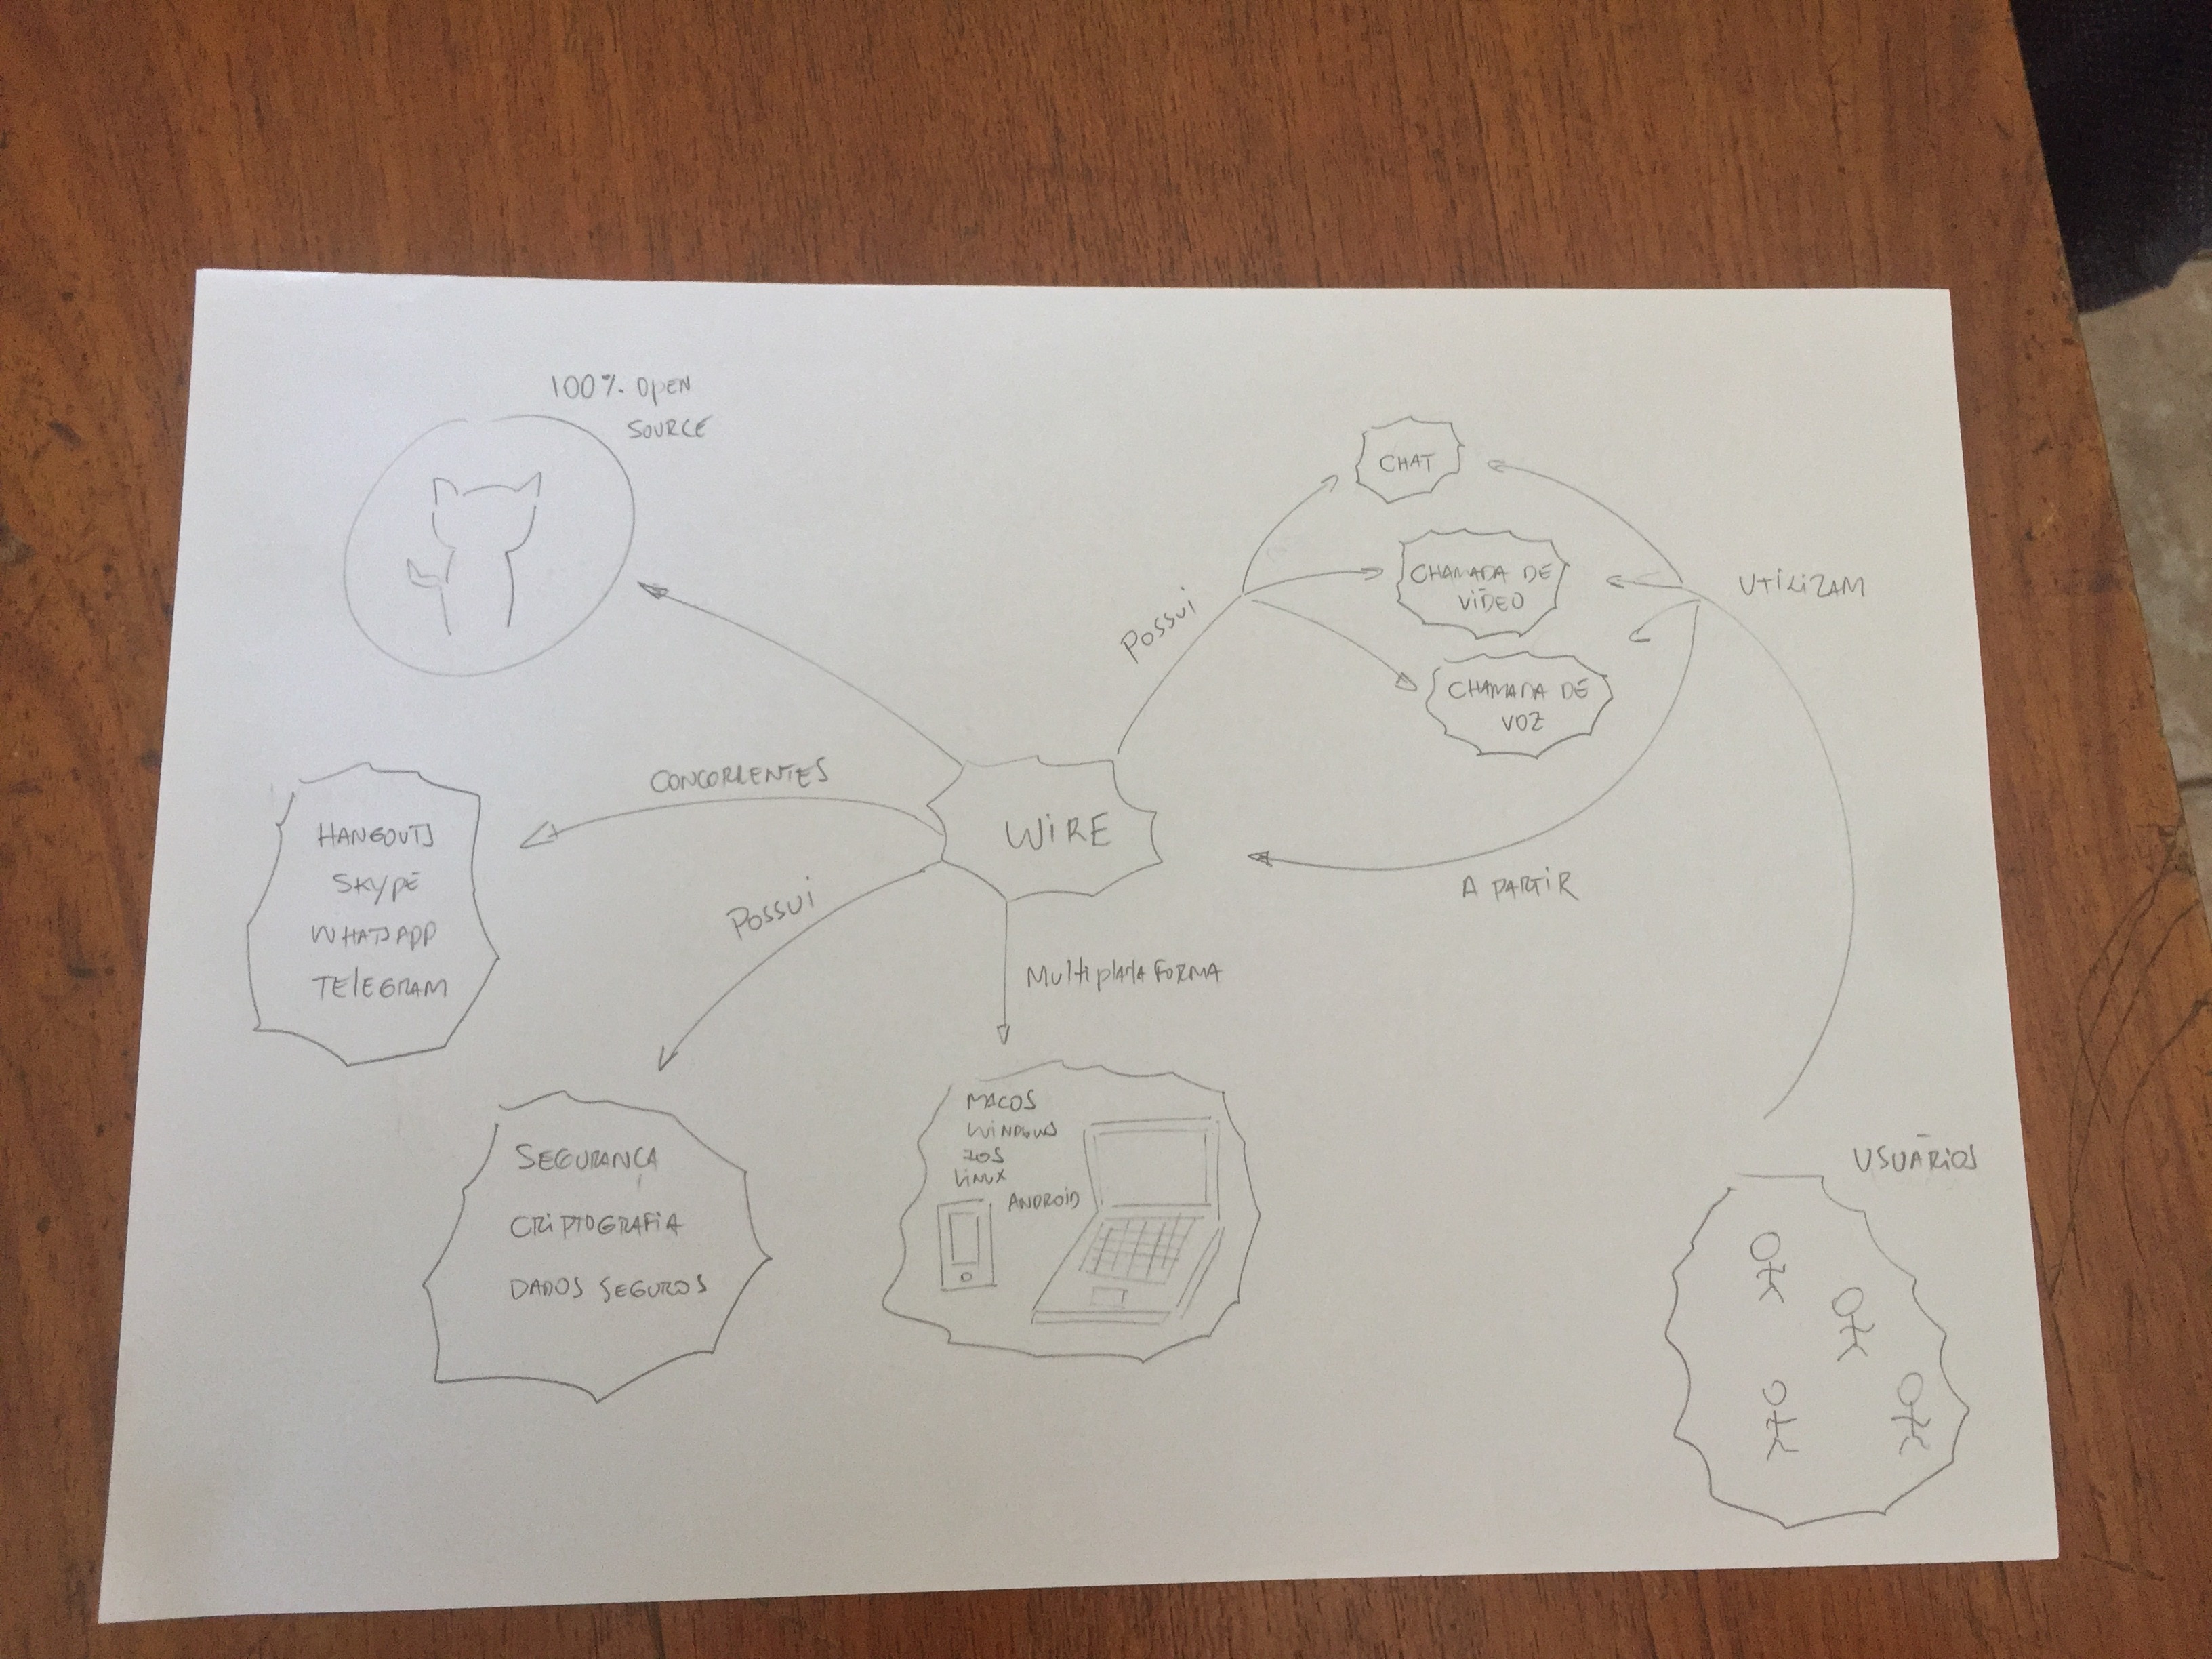 100% OPEN
SOURCE
CHAT
CHAMADA DE
VÍDEO
CHAMADA DE
VOZ
UTILIZAM
POSSUI
CONCORRENTES
WIRE
A PARTIR
HANGOUTS
SKYPE
WHATSAPP
TELEGRAM
POSSUI
MULTIPLATAFORMA
SEGURANÇA
CRIPTOGRAFIA
DADOS SEGUROS
MACOS
WINDOWS
IOS
LINUX
ANDROID
USUÁRIOS